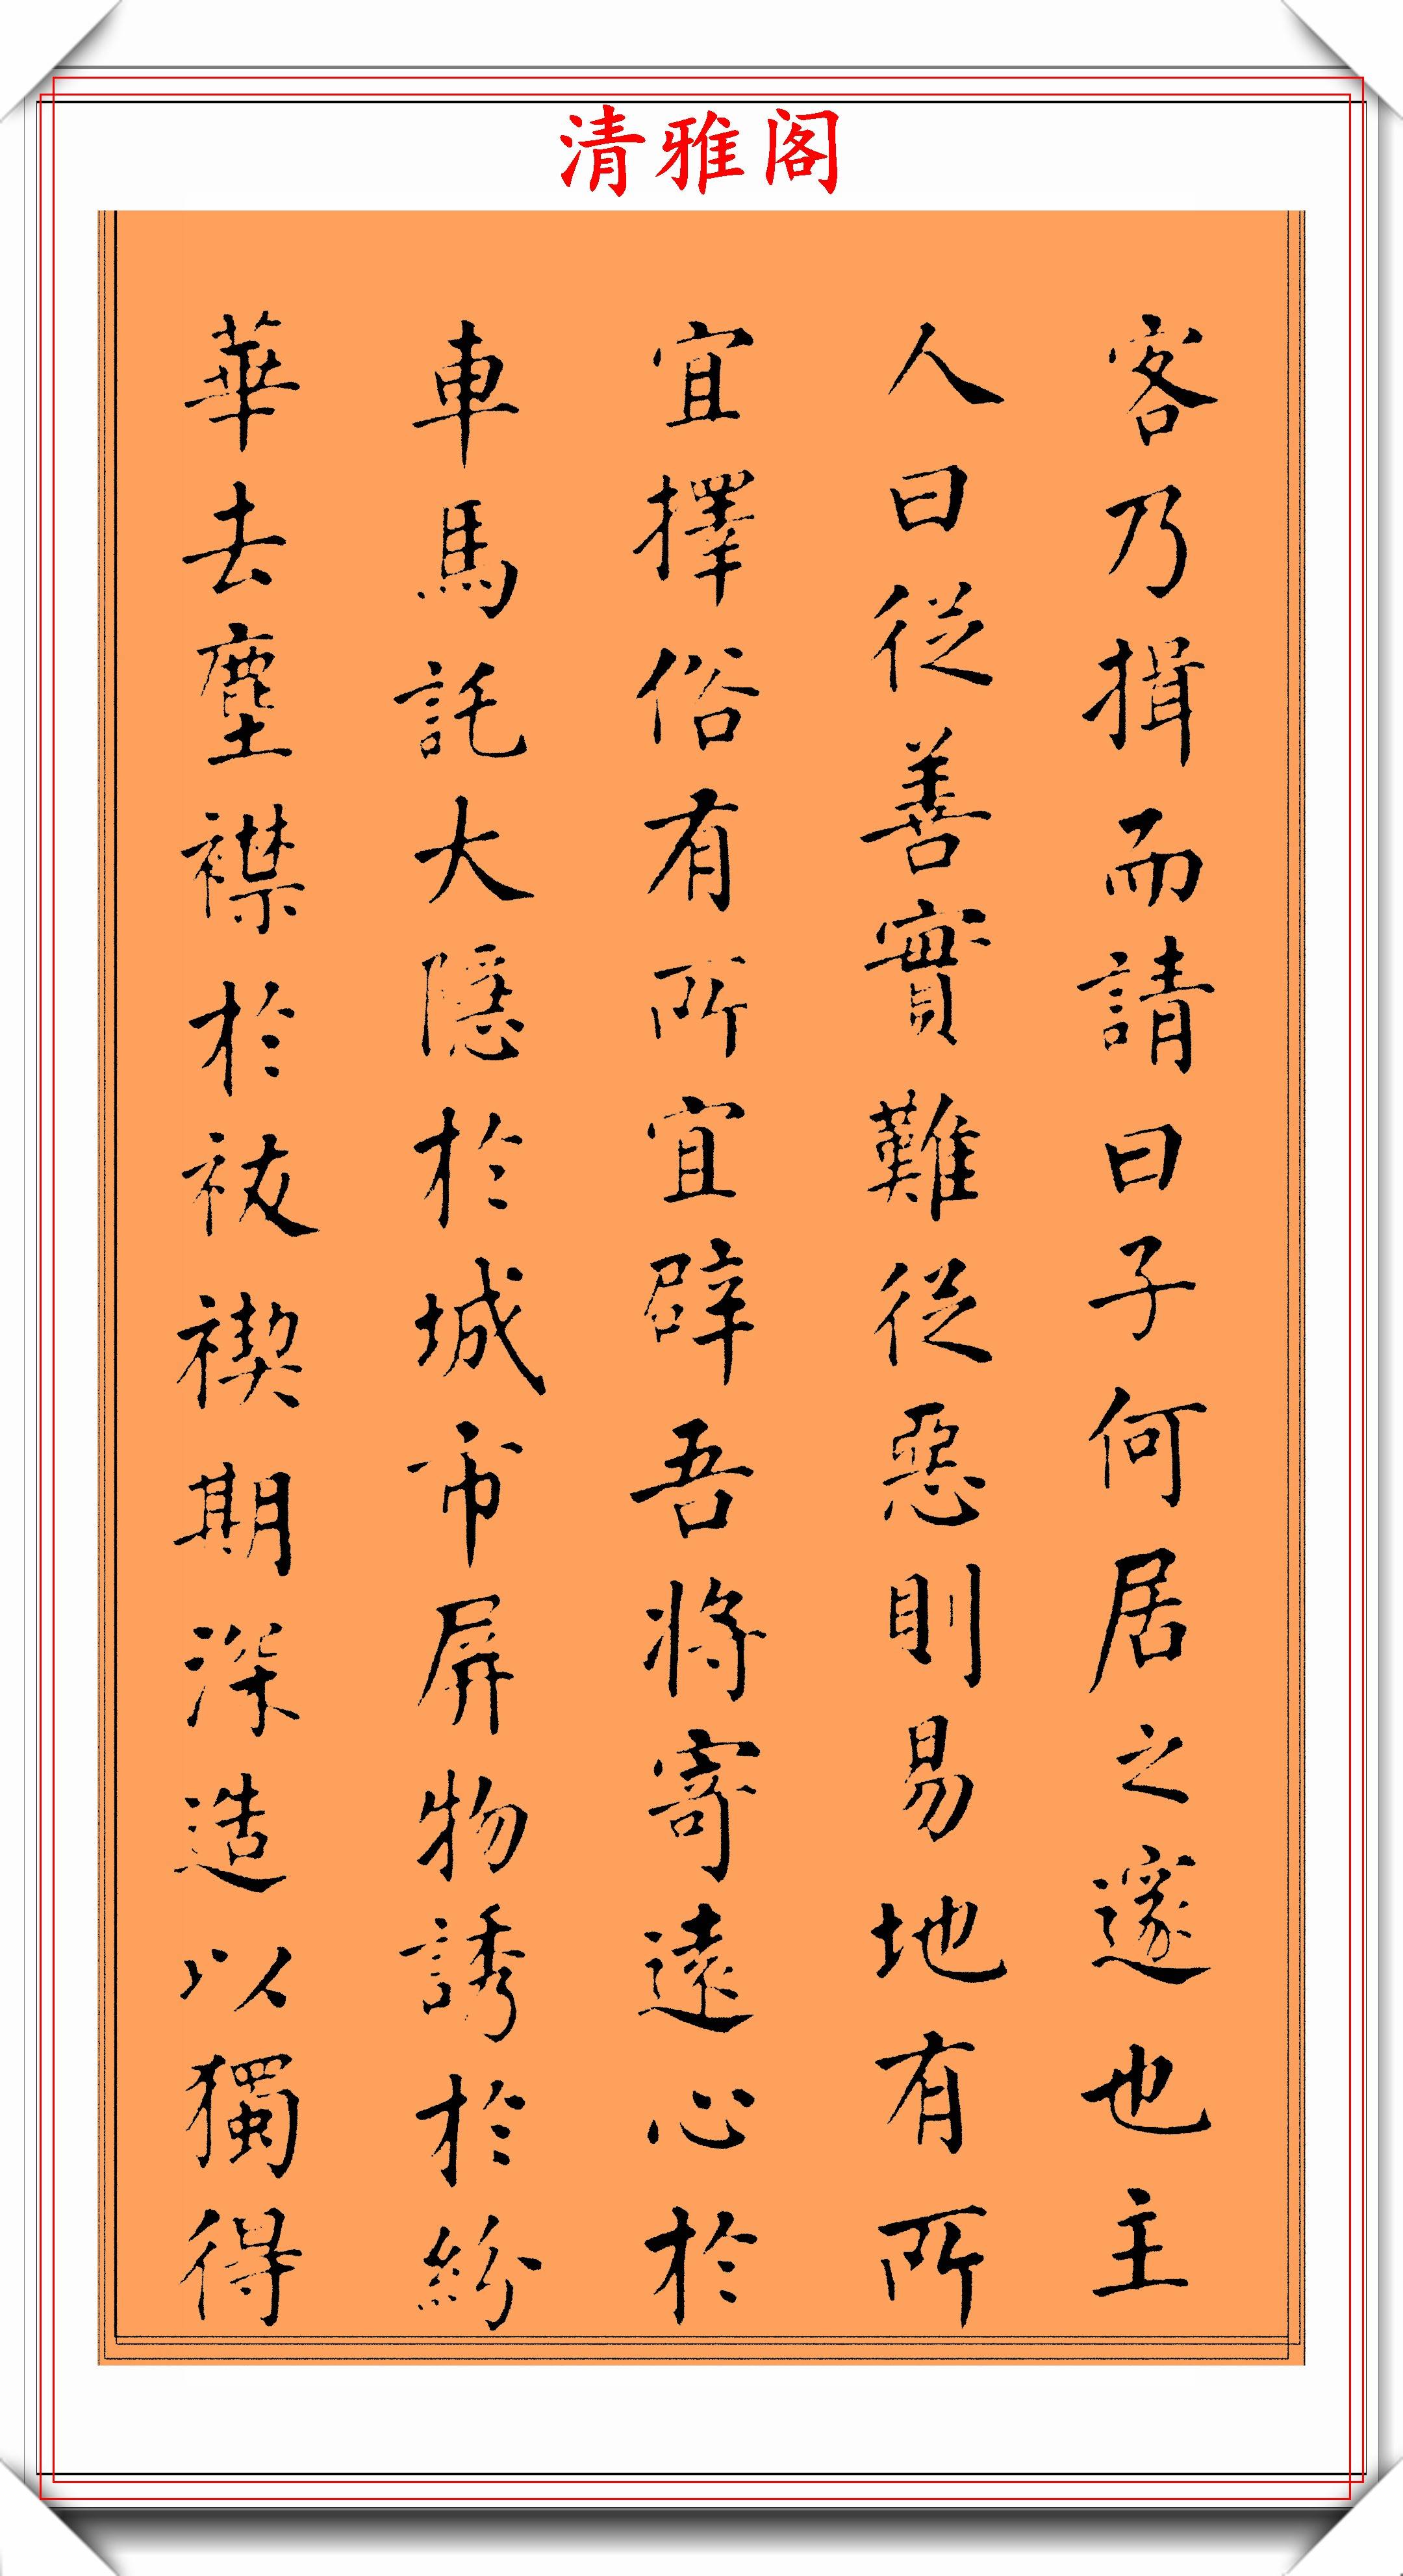 清雅阁
客乃揖而請曰子何居之邃也主
人曰從善實難從惡則易地有所
宜擇俗有所宜辟吾將寄遠心於
車馬託大隱於城市屏物誘於紛
華去塵襟於祓禊期深造以獨得